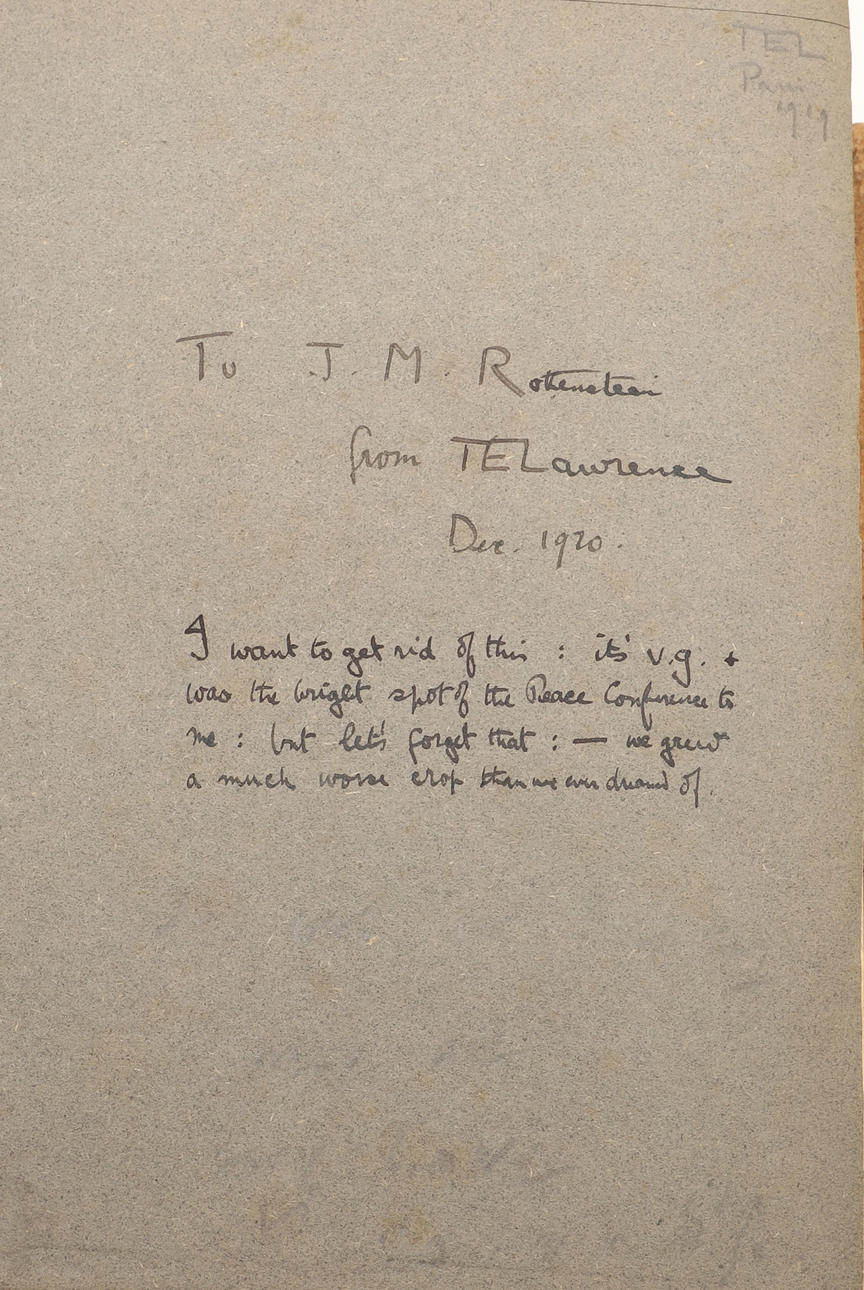 TEL
Paris
1919
To J. M. Rothenstein
from TELawrence
Dec. 1920.
I want to get rid of this : it's v.g. +
was the bright spot of the Peace Conference to
me : but let's forget that : — we grew
a much worse crop than we ever dreamed of.